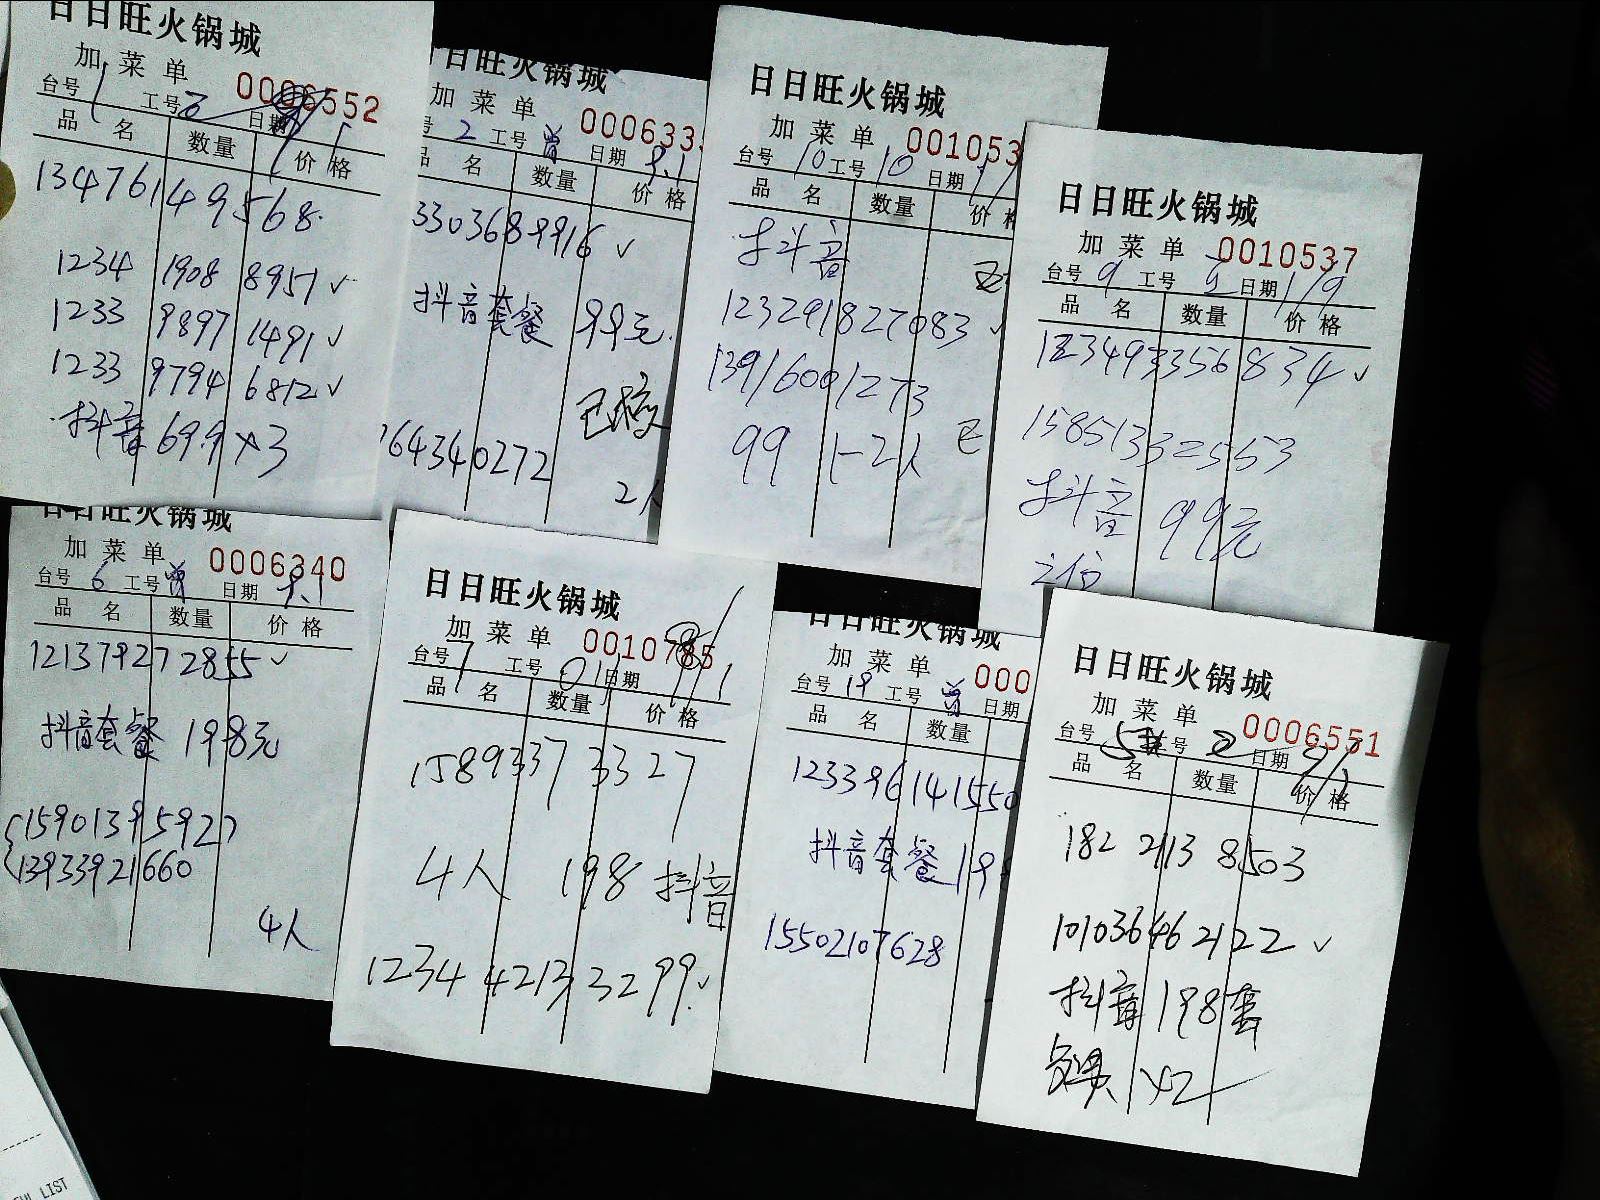 日日旺火锅城
加菜单
0006552
台号 1 工号 日期
品名 数量 价格
13476149568
1234 1908 8951 ✓
1233 9897 1491 ✓
1233 9794 6812 ✓
抖音 69.9 x3
日日旺火锅城
加菜单
000633
号 2 工号 曾 日期 9.1
品名 数量 价格
3303689916 ✓
抖音套餐 99元
已验
764340272
2人
日日旺火锅城
加菜单
001053
台号 10 工号 10 日期 1/
品名 数量 价格
抖音
123291827083 ✓
13916001273
99 1-2人
日日旺火锅城
加菜单
0010537
台号 9 工号 日期 1/9
品名 数量 价格
123493356834 ✓
15851332553
抖音 99元
2位
日日旺火锅城
加菜单
0006340
台号 6 工号 曾 日期 9.1
品名 数量 价格
121379272855 ✓
抖音套餐 198元
15901395927
13933921660
4人
日日旺火锅城
加菜单
0010785
台号 7 工号 01 日期
品名 数量 价格
15893373327
4人 198 抖音
1234 4213 3299 ✓
日日旺火锅城
加菜单
000
台号 19 工号 曾 日期
品名 数量
123396141550
抖音套餐 19
15502107628
日日旺火锅城
加菜单
0006551
台号 5 工号 2 日期 9/1
品名 数量 价格
182 2113 8503
101036462122 ✓
抖音 198套
x2
LIST